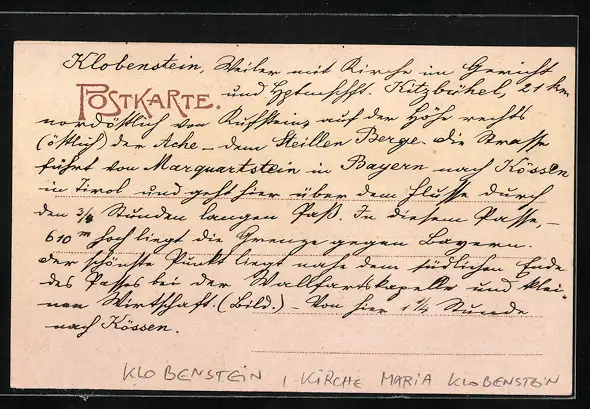 Klobenstein, Weiler mit Kirche im Gericht
POSTKARTE.
und Hptmschft. Kitzbühel, 21 km
nordöstlich von Kufstein auf der Höhe rechts
(östlich) der Ache – dem steilen Berge. Die Strasse
führt von Marquartstein in Bayern nach Kössen
in Tirol und geht hier über dem Flusse durch
den 3/4 Stunden langen Paß. In diesem Passe, –
610 m hoch liegt die Grenze gegen Bayern.
Der schönste Punkt liegt nahe dem südlichen Ende
des Passes bei der Wallfartskapelle und klei-
nen Wirtschaft. (Bild.) Von hier 1 1/4 Stunde
nach Kössen.
KLOBENSTEIN, KIRCHE MARIA KLOBENSTEIN